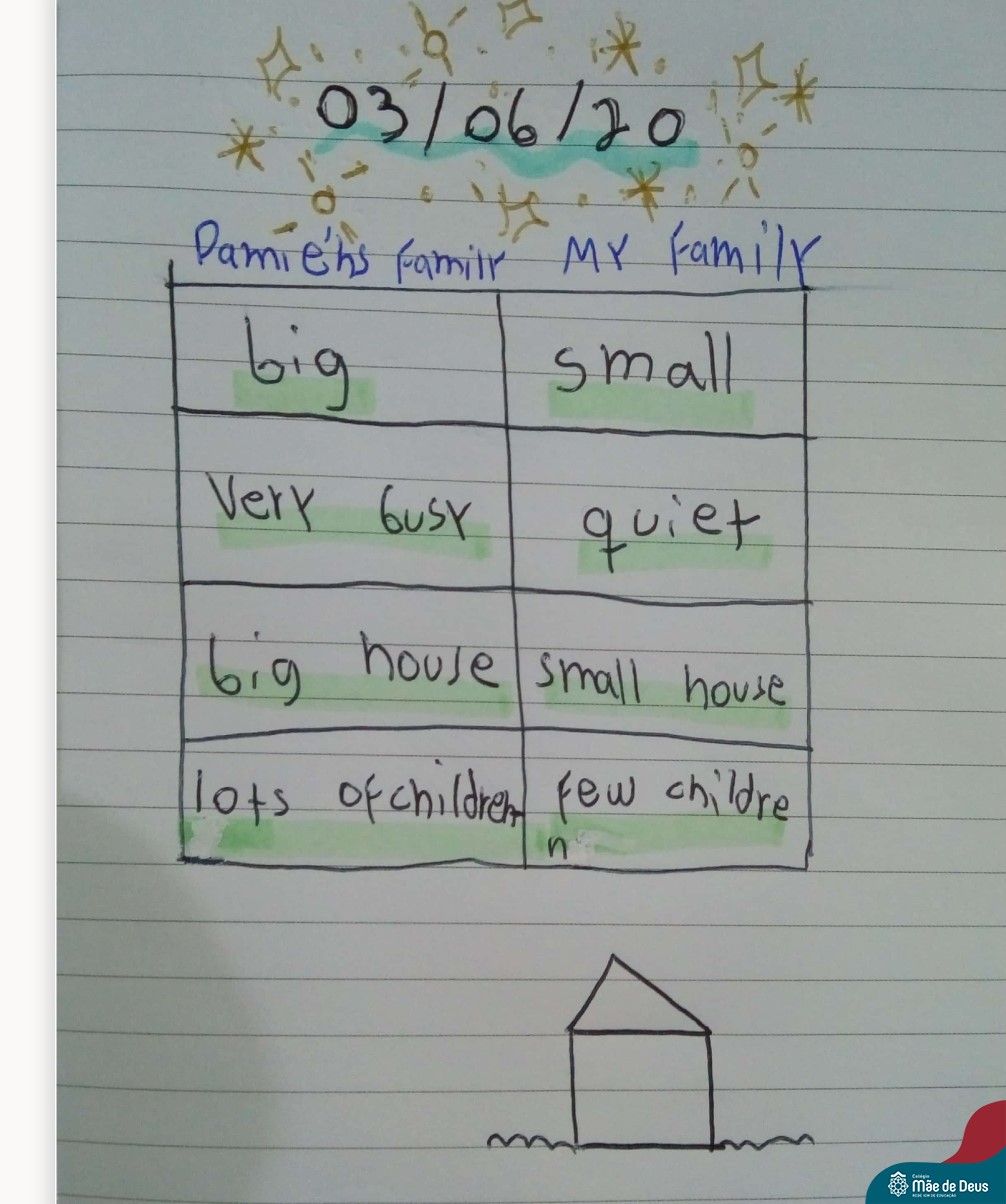 03/06/20
Damie'ns Family My Family
big small
Very busy quiet
big house small house
lots of children few childre
n
Colégio
Mãe de Deus
REDE ICM DE EDUCAÇÃO